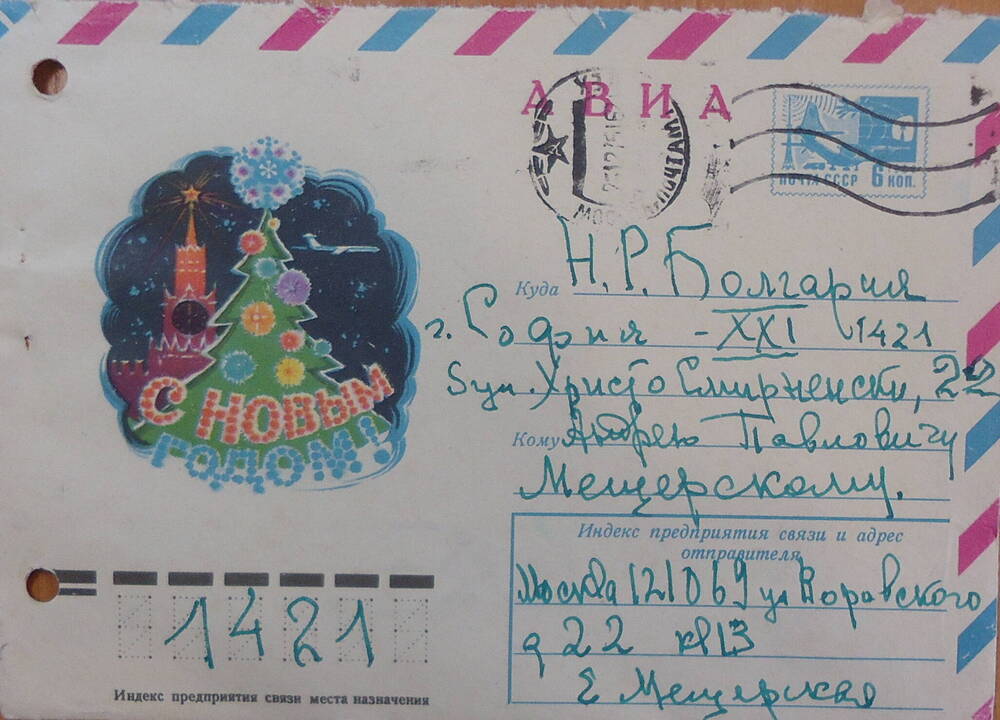 АВИА
ПОЧТА СССР 6 КОП.
С НОВЫМ
ГОДОМ!
Куда Н.Р. Болгария
г. София - XXI 1421
бул. Христо Смирненски, 22
Кому Андрею Павловичу
Мещерскому.
Индекс предприятия связи и адрес
отправителя
Москва 121069 ул Воровского
д 22 кв 13
Е Мещерская
1421
Индекс предприятия связи места назначения